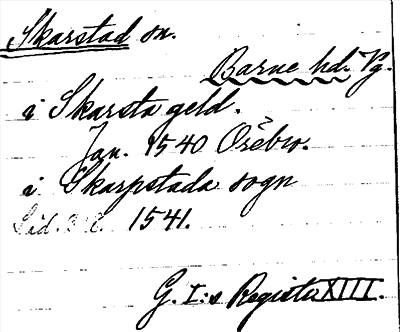 Skarstad sn.
Barne hd. Vg.
i Skarsta geld.
Jan. 1540 Örebro.
i Skarpstada sogn
1541.
G. I:s Registr XIII.